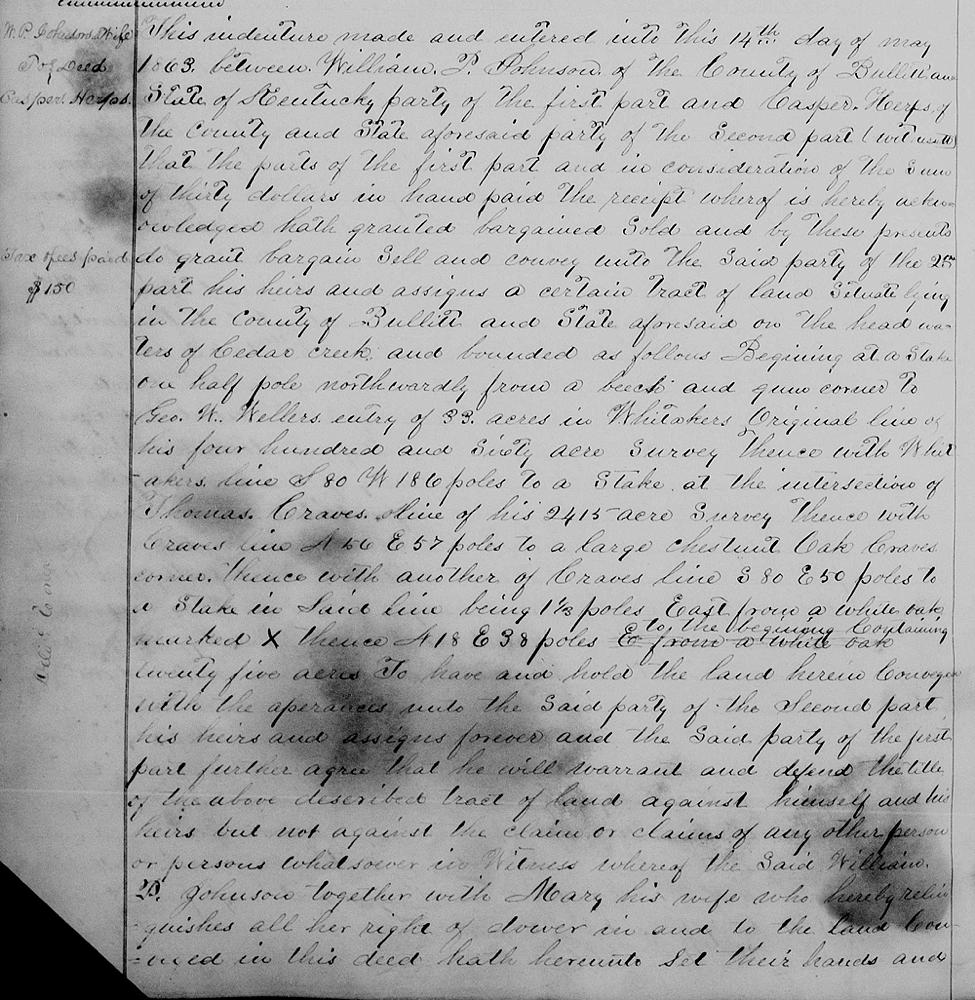 W. P. Johnson & Wife
To of Deed
Casper Herps.
This indenture made and entered into this 14th day of may
1863. between. William. P. Johnson. of the County of Bullitt an
State of Kentucky party of the first part and Casper. Herps. of
the County and State aforesaid party of the Second part (witnesseth)
that the parts of the first part and in consideration of the Sum
of thirty dollars in hand paid the receipt wherof is hereby ackn-
owledged hath granted bargained Sold and by these presents
Tax fees paid
$1 50
do grant bargain Sell and convey unto the Said party of the 2nd
part his heirs and assigns a certain tract of land Situate lying
in the County of Bullitt and State aforesaid on the head wa-
ters of Cedar creek. and bounded as follows Begining at a Stake
one half pole northwardly from a beech and gum corner to
Geo. W. Wellers. entry of 33. acres in Whitakers Original line of
his four hundred and Sixty acre Survey Thence with Whit
-akers. line S 80 W 186 poles to a Stake. at the intersection of
Thomas. Craves. line of his 2415 acre Survey Thence with
Craves line N 56 E 57 poles to a large chestnut Oak Craves
corner. Thence with another of Craves line S 80 E 50 poles to
a Stake in Said line being 1 1/3 poles East from a white oak
marked X thence N 18 E 38 poles E from a white oak
to the begining Containing
twenty five acres To have and hold the land herein Conveyed
with the aperances unto the Said party of the Second part
his heirs and assigns forever and the Said party of the first
part further agree that he will warrant and defend the title
of the above described tract of land against himself and his
heirs but not against the claim or claims of any other person
or persons whatsoever in Witness whereof the Said William.
P. Johnson together with Mary his wife who hereby relin
-quishes all her right of dower in and to the land Con-
in this deed hath hereunto Set their hands and